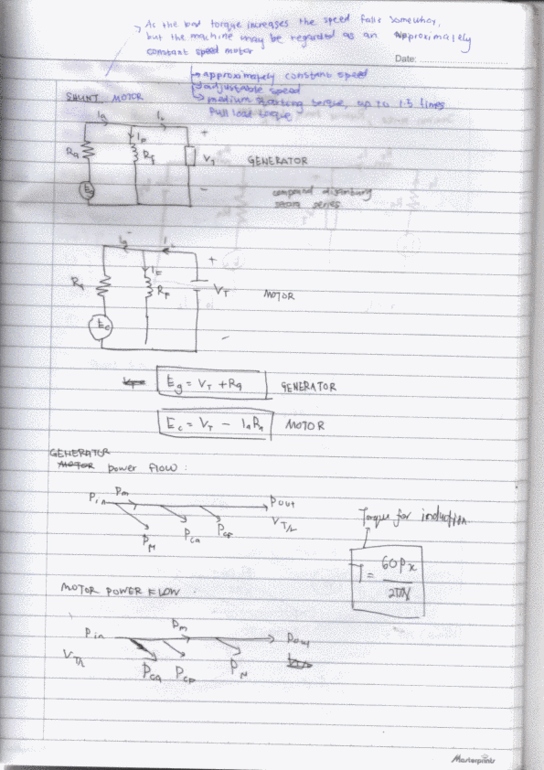 As the load torque increases the speed falls somewhat,
but the machine may be regarded as an approximately
constant speed motor
Date:
approximately constant speed
adjustable speed
medium starting torque, up to 1.5 times
full load torque
SHUNT MOTOR
Ia
IL
+
Ra
IF
RF
VT
GENERATOR
Eg
-
compound
series
Ia
IL
+
Ra
IF
RF
VT
MOTOR
Ec
-
Eg = VT + Ra
GENERATOR
Ec = VT - IaRa
MOTOR
GENERATOR
MOTOR power flow:
Pin
Pm
Pout
PN
Pca
Pcf
VTIL
Torque for induction
T = 60Px
2πN
MOTOR POWER FLOW
Pin
Pm
Pout
VTIL
Pca
Pcf
PN
Masterprints